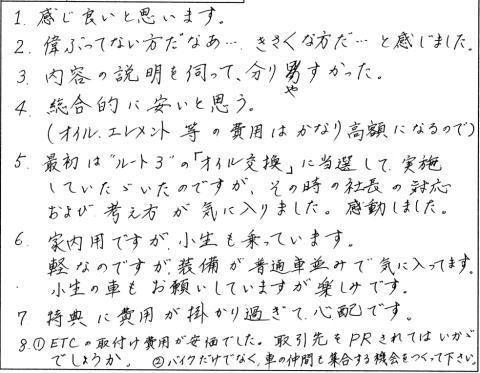 1. 感じ良いと思います。
2. 偉ぶってない方だなあ… きさくな方だ… と感じました。
3. 内容の説明を伺って、分りやすかった。
4. 総合的に安いと思う。
(オイル、エレメント等の費用はかなり高額になるので)
5. 最初は"ルート3"の「オイル交換」に当選して、実施
していただいたのですが、その時の社長の対応
および考え方が気に入りました。感動しました。
6. 家内用ですが、小生も乗っています。
軽なのですが、装備が普通車並みで気に入ってます。
小生の車もお願いしていますが楽しみです。
7 特典に費用が掛かり過ぎて、心配です。
8. ① ETCの取付け費用が安価でした。取引先をPRされてはいかが
でしょうか。 ②バイクだけでなく、車の仲間も集合する機会をつくって下さい。